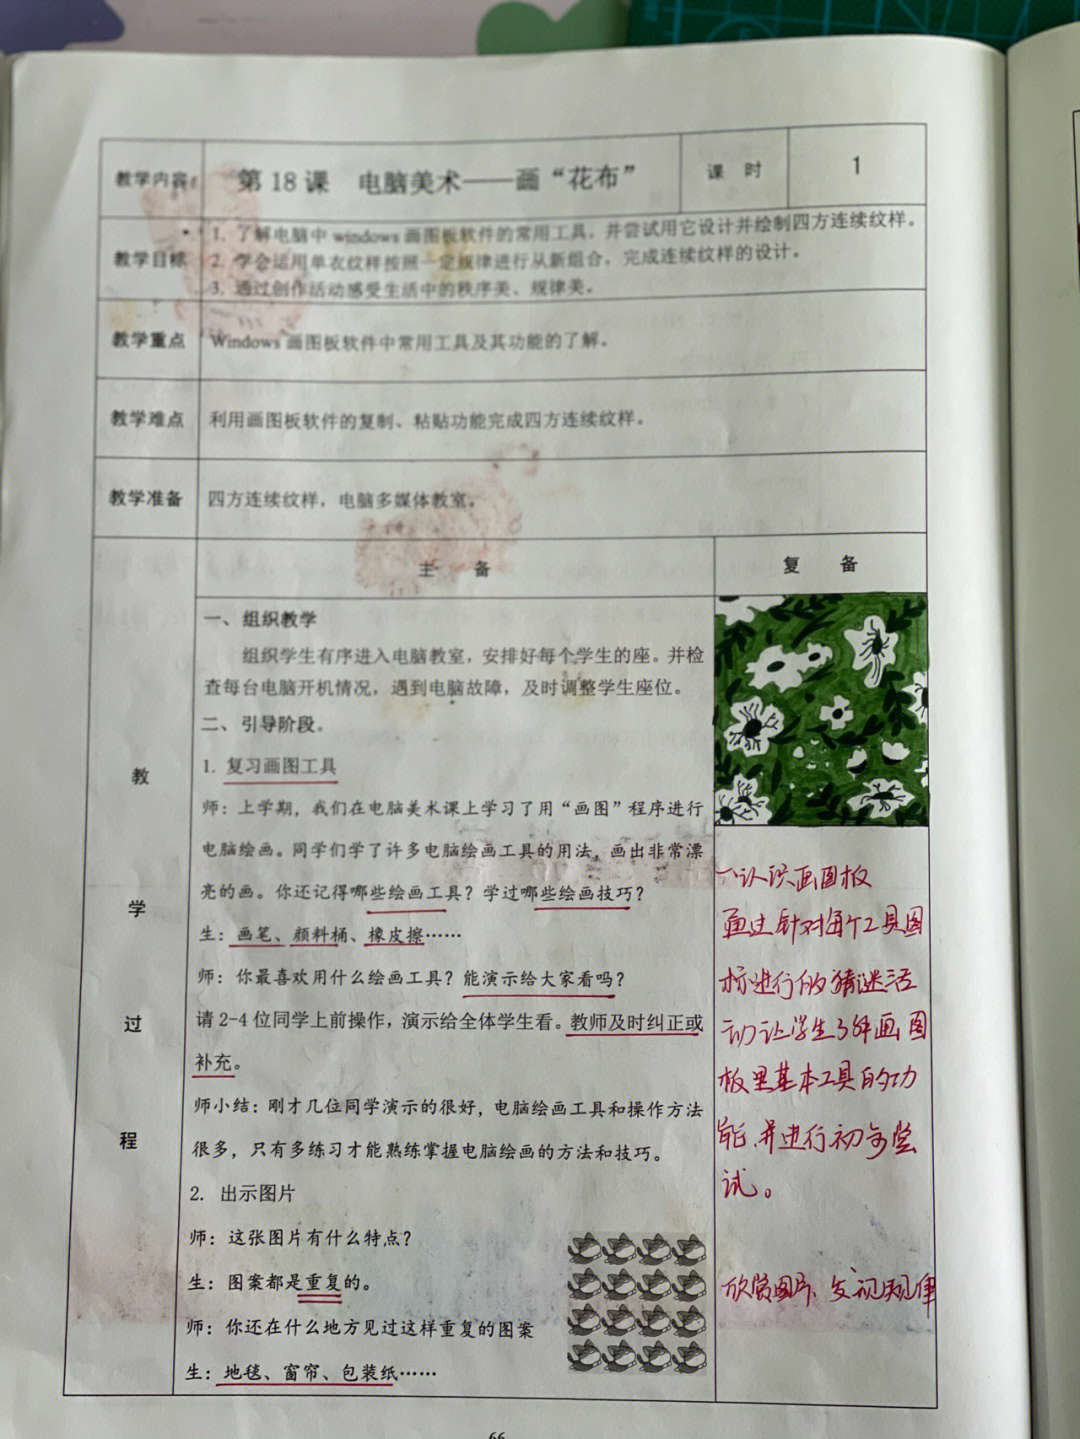 教学内容 第 18 课 电脑美术——画“花布” 课 时 1
教学目标
1. 了解电脑中 windows 画图板软件的常用工具，并尝试用它设计并绘制四方连续纹样。
2. 学会运用单衣纹样按照一定规律进行从新组合，完成连续纹样的设计。
3. 通过创作活动感受生活中的秩序美、规律美。
教学重点 Windows 画图板软件中常用工具及其功能的了解。
教学难点 利用画图板软件的复制、粘贴功能完成四方连续纹样。
教学准备 四方连续纹样，电脑多媒体教室。
教学过程
主 备
一、组织教学
组织学生有序进入电脑教室，安排好每个学生的座。并检
查每台电脑开机情况，遇到电脑故障，及时调整学生座位。
二、引导阶段。
1. 复习画图工具
师：上学期，我们在电脑美术课上学习了用“画图”程序进行
电脑绘画。同学们学了许多电脑绘画工具的用法，画出非常漂
亮的画。你还记得哪些绘画工具？学过哪些绘画技巧？
生：画笔、颜料桶、橡皮擦……
师：你最喜欢用什么绘画工具？能演示给大家看吗？
请 2-4 位同学上前操作，演示给全体学生看。教师及时纠正或
补充。
师小结：刚才几位同学演示的很好，电脑绘画工具和操作方法
很多，只有多练习才能熟练掌握电脑绘画的方法和技巧。
2. 出示图片
师：这张图片有什么特点？
生：图案都是重复的。
师：你还在什么地方见过这样重复的图案
生：地毯、窗帘、包装纸……
复 备
一认识画图板
通过针对每个工具图
标进行的猜谜活
动让学生了解画图
板里基本工具的功
能，并进行初步尝
试。
欣赏图片、发现规律
66